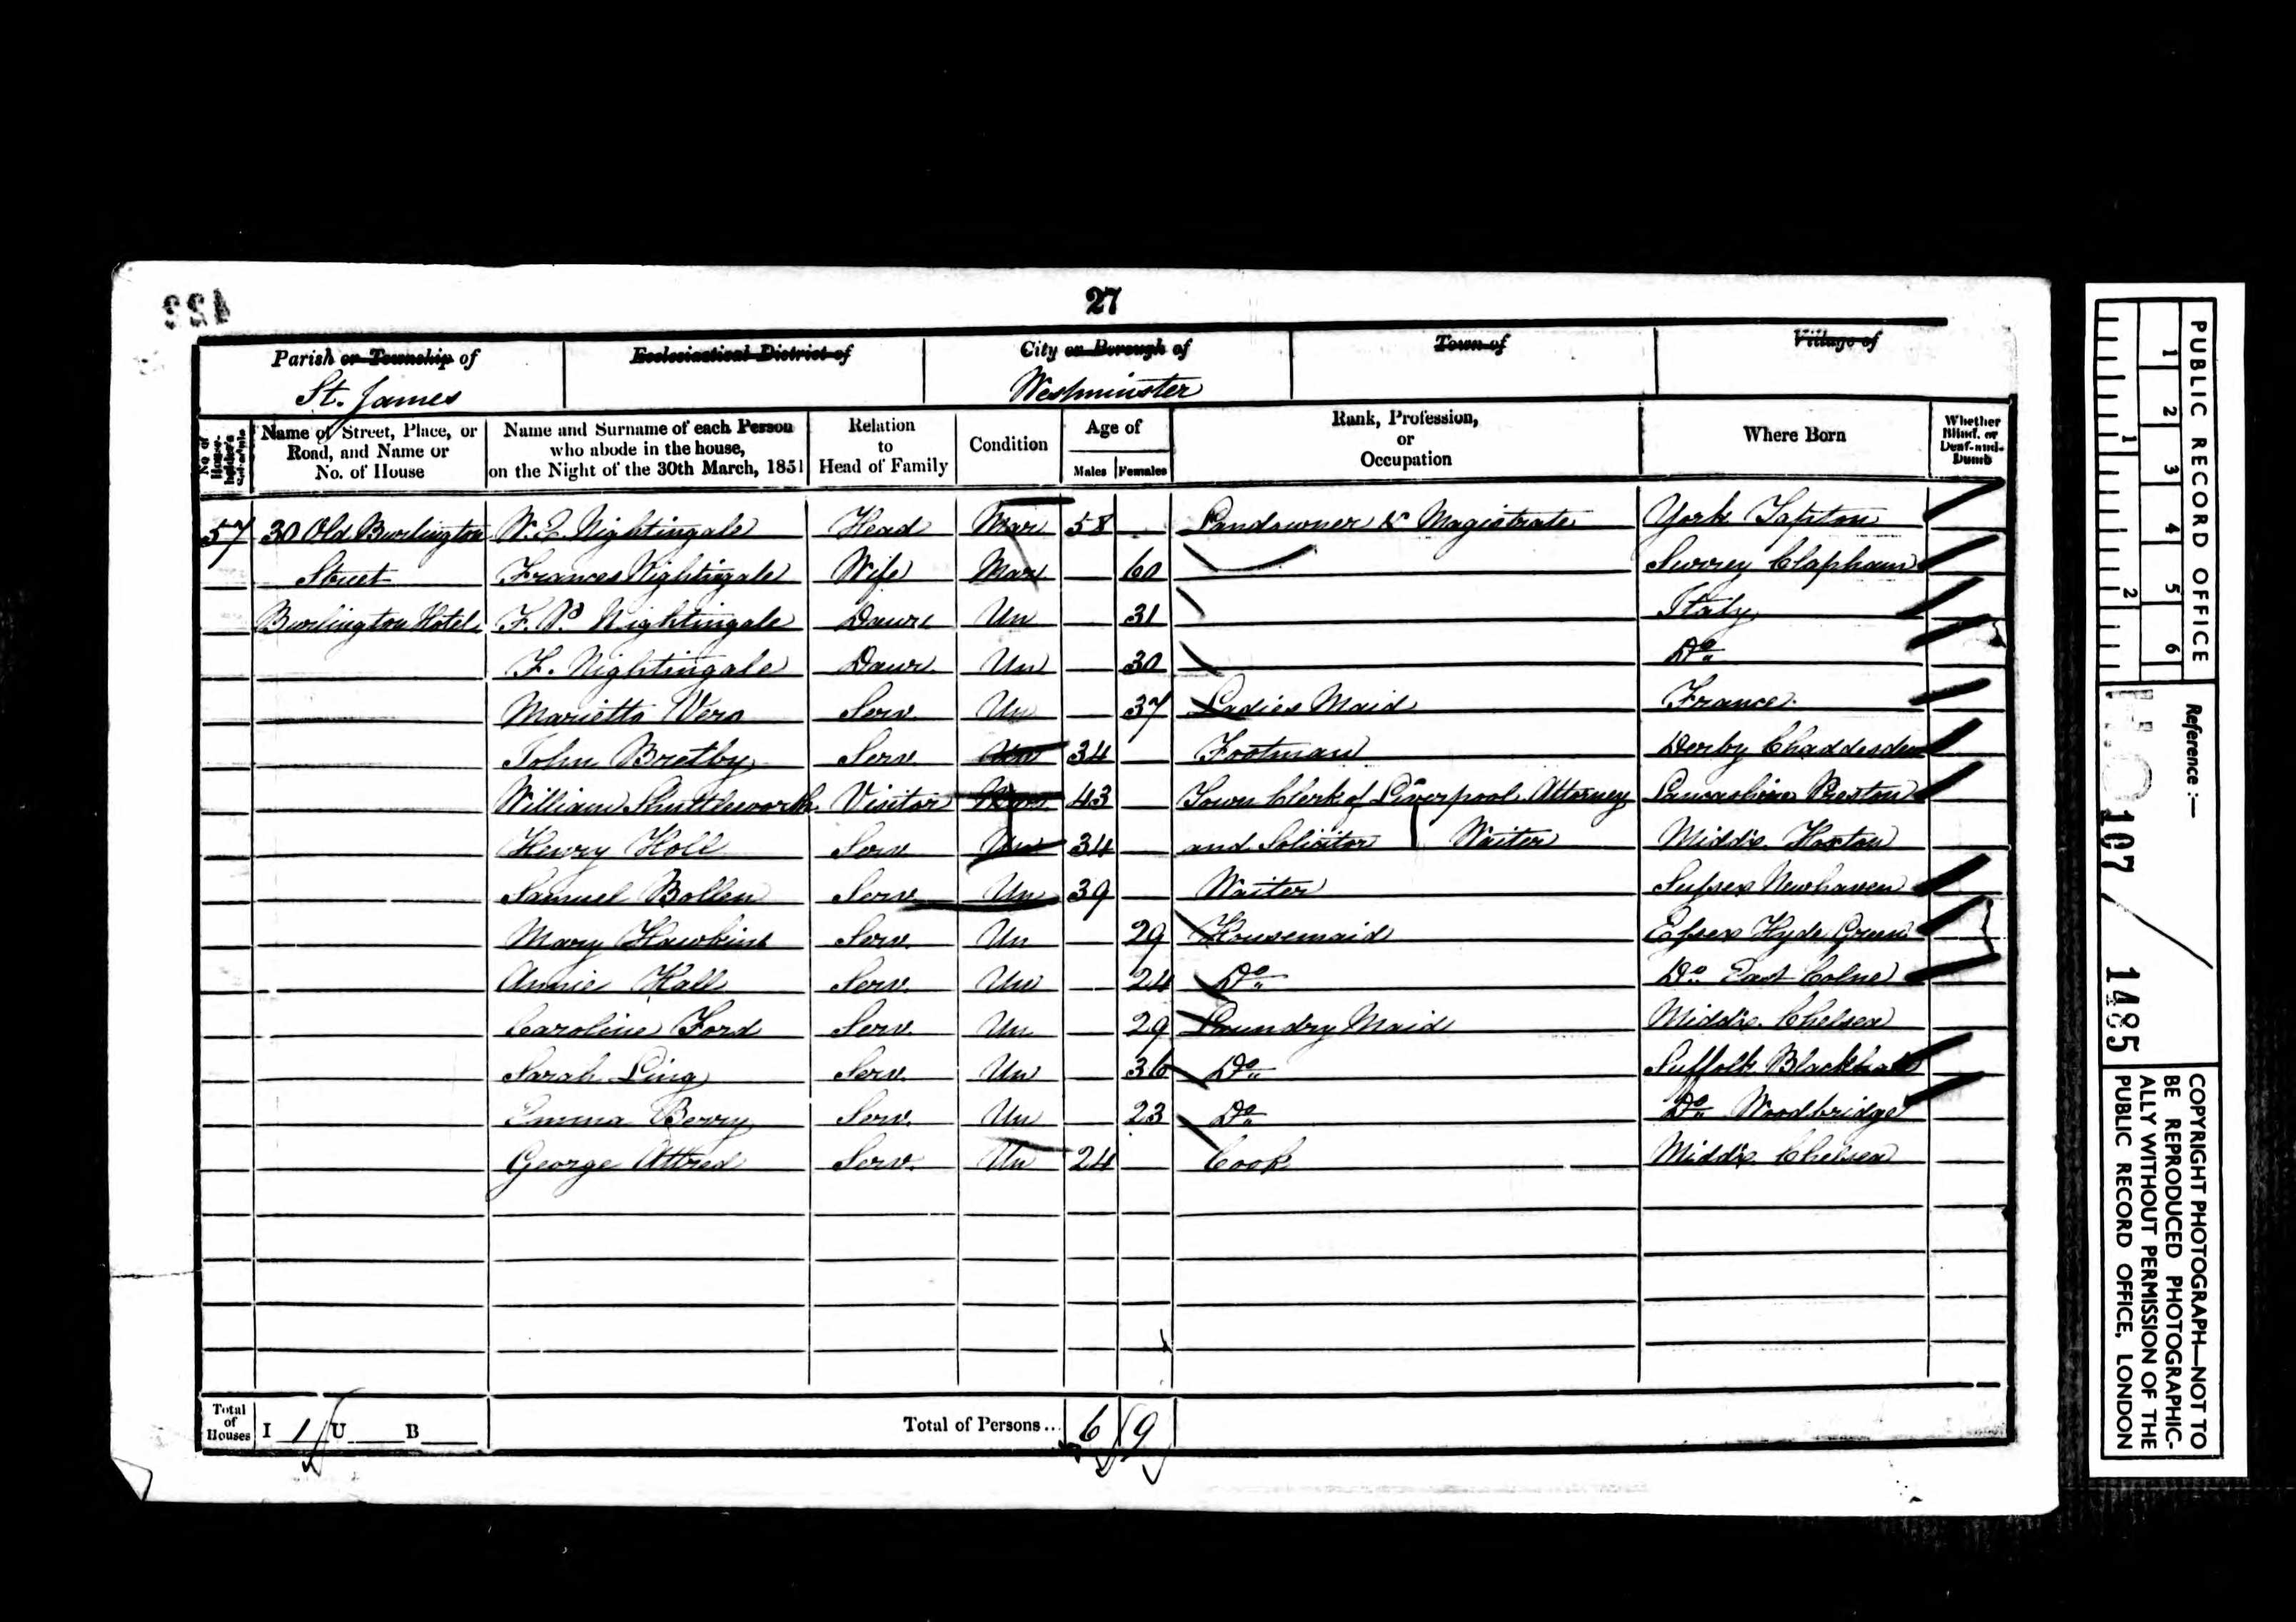 423
27
Parish or Township of
St. James
Ecclesiastical District of
City or Borough of
Westminster
Town of
Village of
No. of House-holder's Schedule
Name of Street, Place, or Road, and Name or No. of House
Name and Surname of each Person who abode in the house, on the Night of the 30th March, 1851
Relation to Head of Family
Condition
Age of
Males Females
Rank, Profession, or Occupation
Where Born
Whether Blind, or Deaf-and-Dumb
57 30 Old Burlington W. E. Nightingale Head Mar 58 Landowner & Magistrate York Tapton
Street Frances Nightingale Wife Mar 60 Surrey Clapham
Burlington Hotel F. P. Nightingale Daur Un 31 Italy
F. Nightingale Daur Un 30 Do
Serv. Un 37 Ladies Maid France
John Bretby Serv. Un 34 Footman Derby Chaddesden
William Shuttleworth Visitor Mar 43 Town Clerk of Liverpool Attorney Lancashire Preston
Henry Holl Serv. Un 34 and Solicitor Waiter Middx. Hoxton
Samuel Bollen Serv. Un 39 Waiter Sussex Newhaven
Mary Hawkins Serv. Un 29 Housemaid Essex Hyde Green
Annie Hall Serv. Un 24 Do Do East Colne
Caroline Ford Serv. Un 29 Laundry Maid Middx. Chelsea
Sarah Ling Serv. Un 36 Do Suffolk
Emma Berry Serv. Un 23 Do Do Woodbridge
George Attred Serv. Un 24 Cook Middx. Chelsea
Total of Houses I 1 U B
Total of Persons... 6 9
PUBLIC RECORD OFFICE
1 2 3 4 5 6
1 2
Reference:-
H.O. 107 / 1485
COPYRIGHT PHOTOGRAPH—NOT TO
BE REPRODUCED PHOTOGRAPHIC-
ALLY WITHOUT PERMISSION OF THE
PUBLIC RECORD OFFICE, LONDON